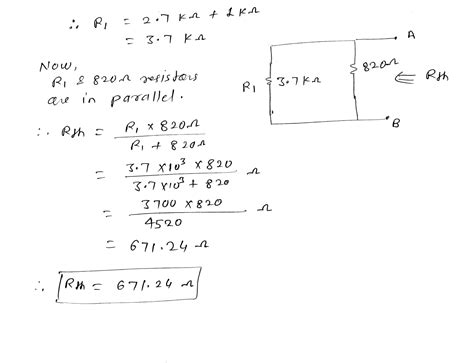 ∴ R₁ = 2.7 KΩ + 1KΩ
= 3.7 KΩ
Now,
R₁ & 820Ω resistors
are in parallel.
A
820Ω
R₁
3.7KΩ
⇐ Rth
B
∴ Rth = R₁ × 820Ω / R₁ + 820Ω
= 3.7 × 10³ × 820 / 3.7 × 10³ + 820 Ω
= 3700 × 820 / 4520 Ω
= 671.24 Ω
∴ Rth = 671.24 Ω